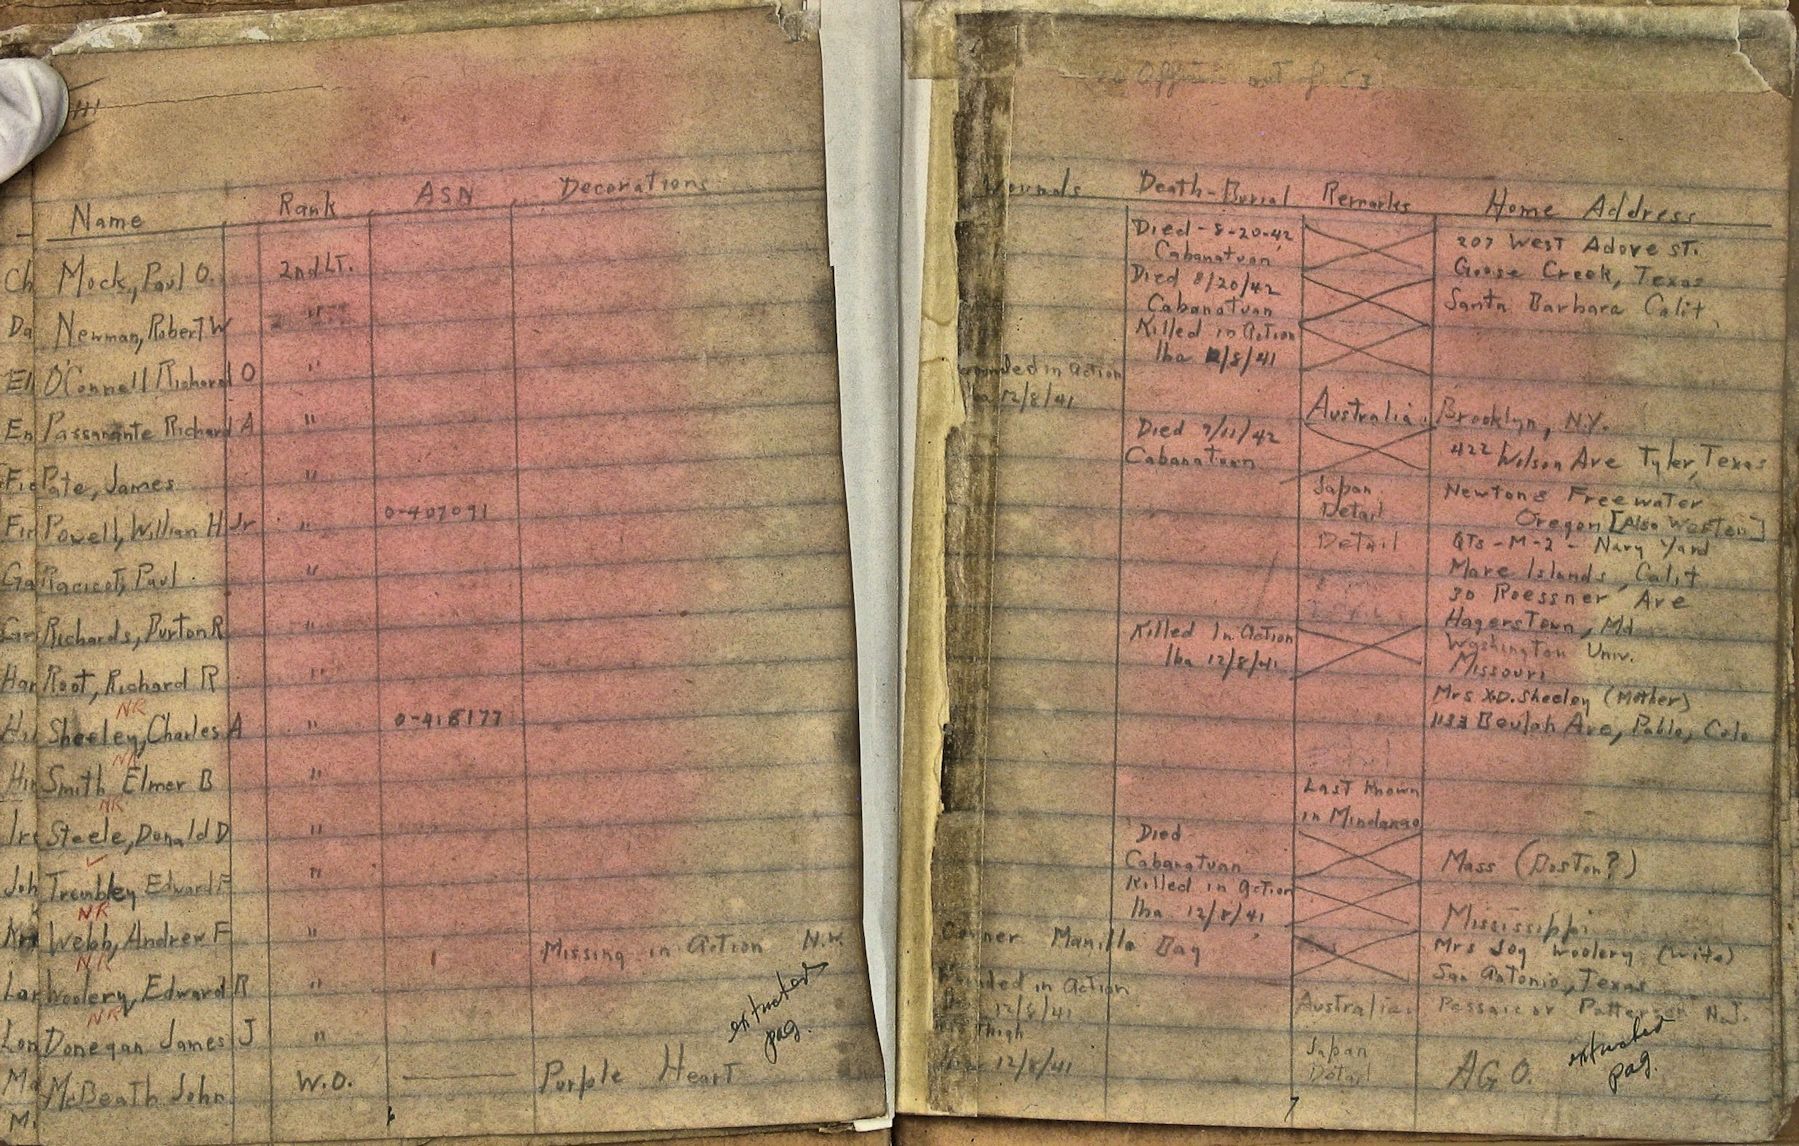 Name Rank ASN Decorations
Ch Mock, Paul O. 2nd LT.
Da Newman, Robert W "
El O'Connell Richard O "
En Passanante Richard A "
Fie Pate, James "
Fir Powell, William H Jr " 0-407091
Ga Racicot, Paul "
Richards, Burton R "
Har Root, Richard R "
NR
Sheeley, Charles A " 0-418177
NR
Smith Elmer B "
NR
Steele, Donald D "
Joh Trembley Edward F "
NR
Webb, Andrew F " Missing in action N.W.
NR
Woolery, Edward R "
NR
Lon Donegan James J "
extracted
pag.
McBeath John W.O. Purple Heart
M.
6
Officers out of 53
Wounds Death-Burial Remarks Home Address
Died - 8-20-42 207 West Adove st.
Cabanatuan Goose Creek, Texas
Died 8/20/42 Santa Barbara Calif.
Cabanatuan
Killed in Action
Iba 12/8/41
Wounded in action
12/8/41 Australia. Brooklyn, N.Y.
Died 7/11/42 422 Wilson Ave Tyler, Texas
Cabanatuan
Japan Newton & Freewater
Detail Oregon [Also Weston]
Detail QTS-M-2 - Navy Yard
Mare Islands, Calif
30 Roessner Ave
Hagerstown, Md
Killed In action Washington Univ.
Iba 12/8/41 Missouri
Mrs X.D. Sheeley (Mother)
1133 Beulah Ave, Publo, Colo
Last Known
in Mindanao
Died
Cabanatuan Mass (Boston?)
Killed in action
Iba 12/8/41 Mississippi
Corner Manilla Bay Mrs Joy Woolery (wife)
San Antonio, Texas
Wounded in action
12/8/41 Australia. Passaic or Patterson N.J.
Thigh
12/8/41 Japan
Detail AGO.
extracted
pag.
7